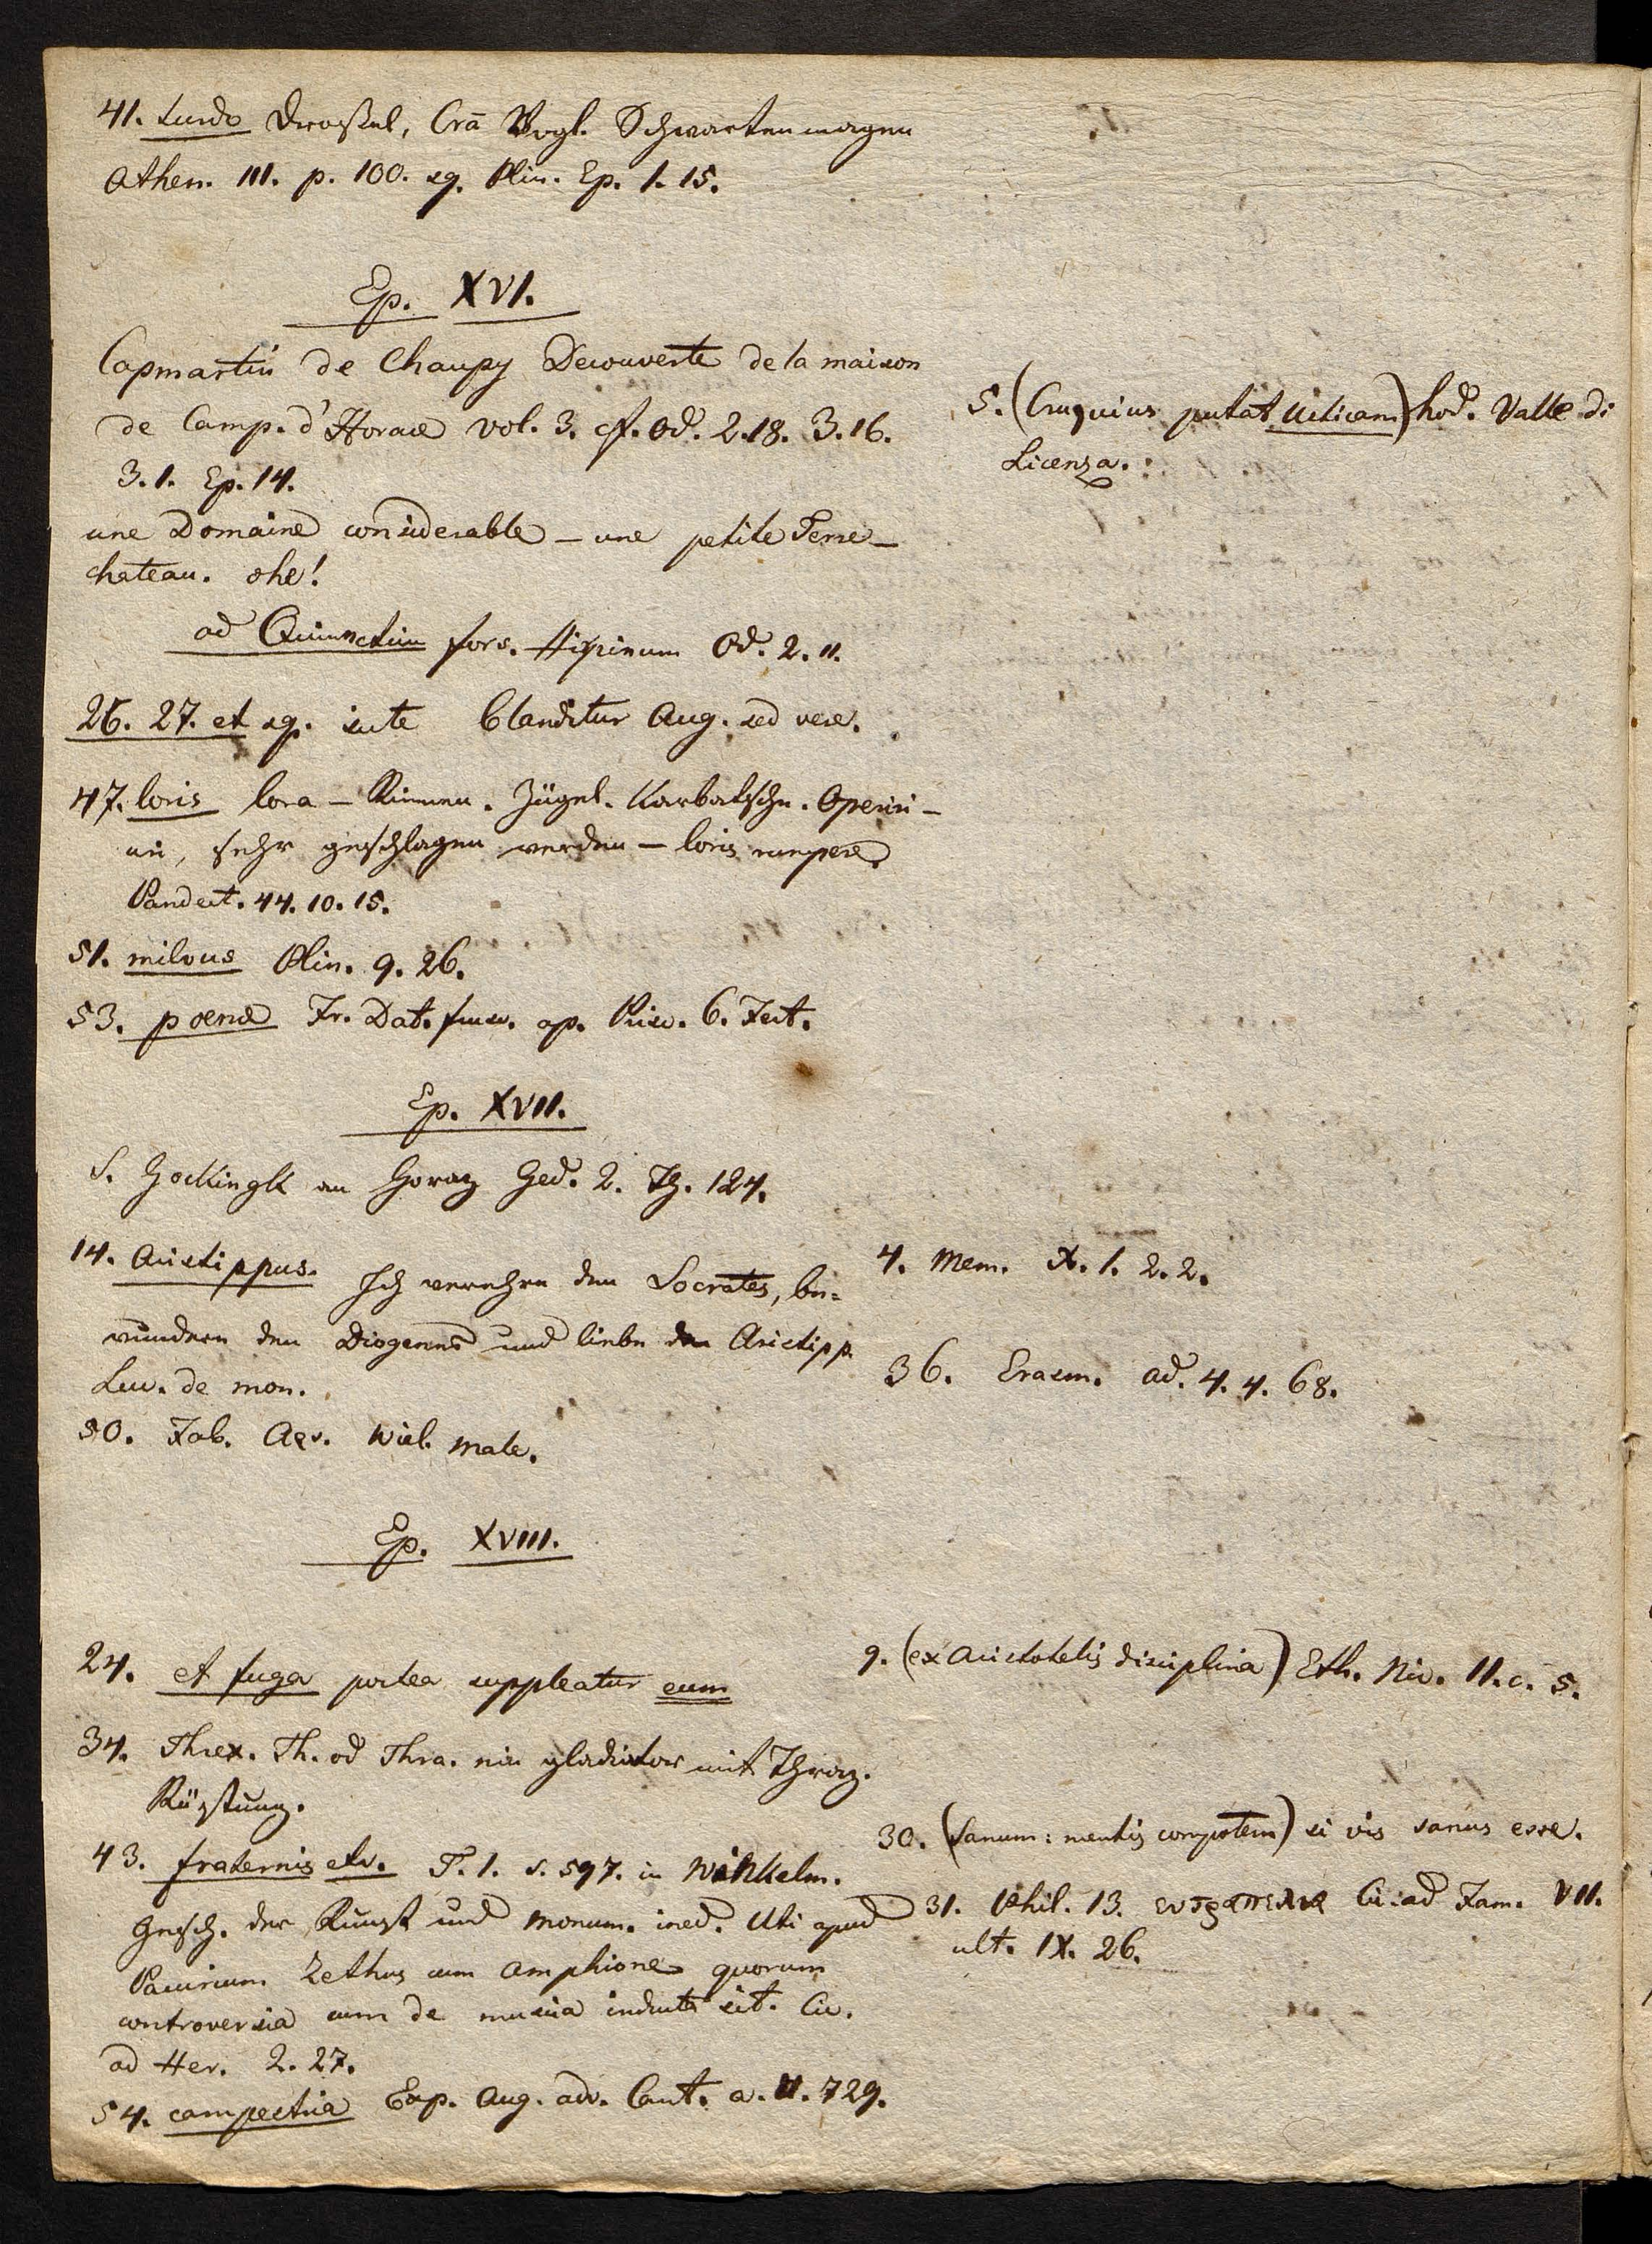 41. turdo Drossel, Cra᷑ Vogl. Schwartenmagen
Athen. III. p. 100. sq. Plin. Ep. 1. 15.
Ep. XVI.
Capmartin de Chaupy Decouverte de la maison
de Camp. d'Horace vol. 3. cf. Od. 2.18. 3.16.
3.1. Ep. 14.
une Domaine considerable – une petite Terre –
chateau. ohe!
5. (Cruquius putat Usticam) hod. Valle di
Licenza.
ad Quinnctium fors. Hirpinum Od. 2. 11.
26. 27. et sq. blanditur Aug. sed vere.
47. loris lora – Riemen. Zügel. Karbatsche. Operiri –
uri, sehr geschlagen werden – loris rumpere.
Pandect. 44. 10. 15.
51. milvus Plin. 9. 26.
53. poenae Fr. Dat. ap. Prisc. 6. Fest.
Ep. XVII.
S. Gockingk an Horaz Ged. 2. Th. 124.
14. Aristippus. Ich verehre den Socrates, be=
wundere den Diogenes und liebe den Aristipp.
Luc. de mon.
4. Mem. X. 1. 2. 2.
36. Erasm. ad. 4. 4. 68.
50. Fab. Aes. Wiel. male.
Ep. XVIII.
24. et fuga postea suppleatur eum
9. (ex Aristotelis disciplina) Eth. Nic. II. c. 5.
34. Threx. Th. od Thra. ein gladiator mit Thraz.
Rüstung.
30. (Sanum: mentis compotem) si vis sanus esse.
43. fraternis etc. T. 1. S. 597. in Winkelm.
Gesch. der Kunst und Monum. ined. Uti apud
Pacuvium Zethus cum Amphione quorum
controversia cum de musica inducta sit. Cic.
ad Her. 2. 27.
31. Phil. 13. ευτραπελια Cic. ad Fam. VII.
ult. IX. 26.
54. campestria Exp. Aug. adv. Cant. a. U. 729.